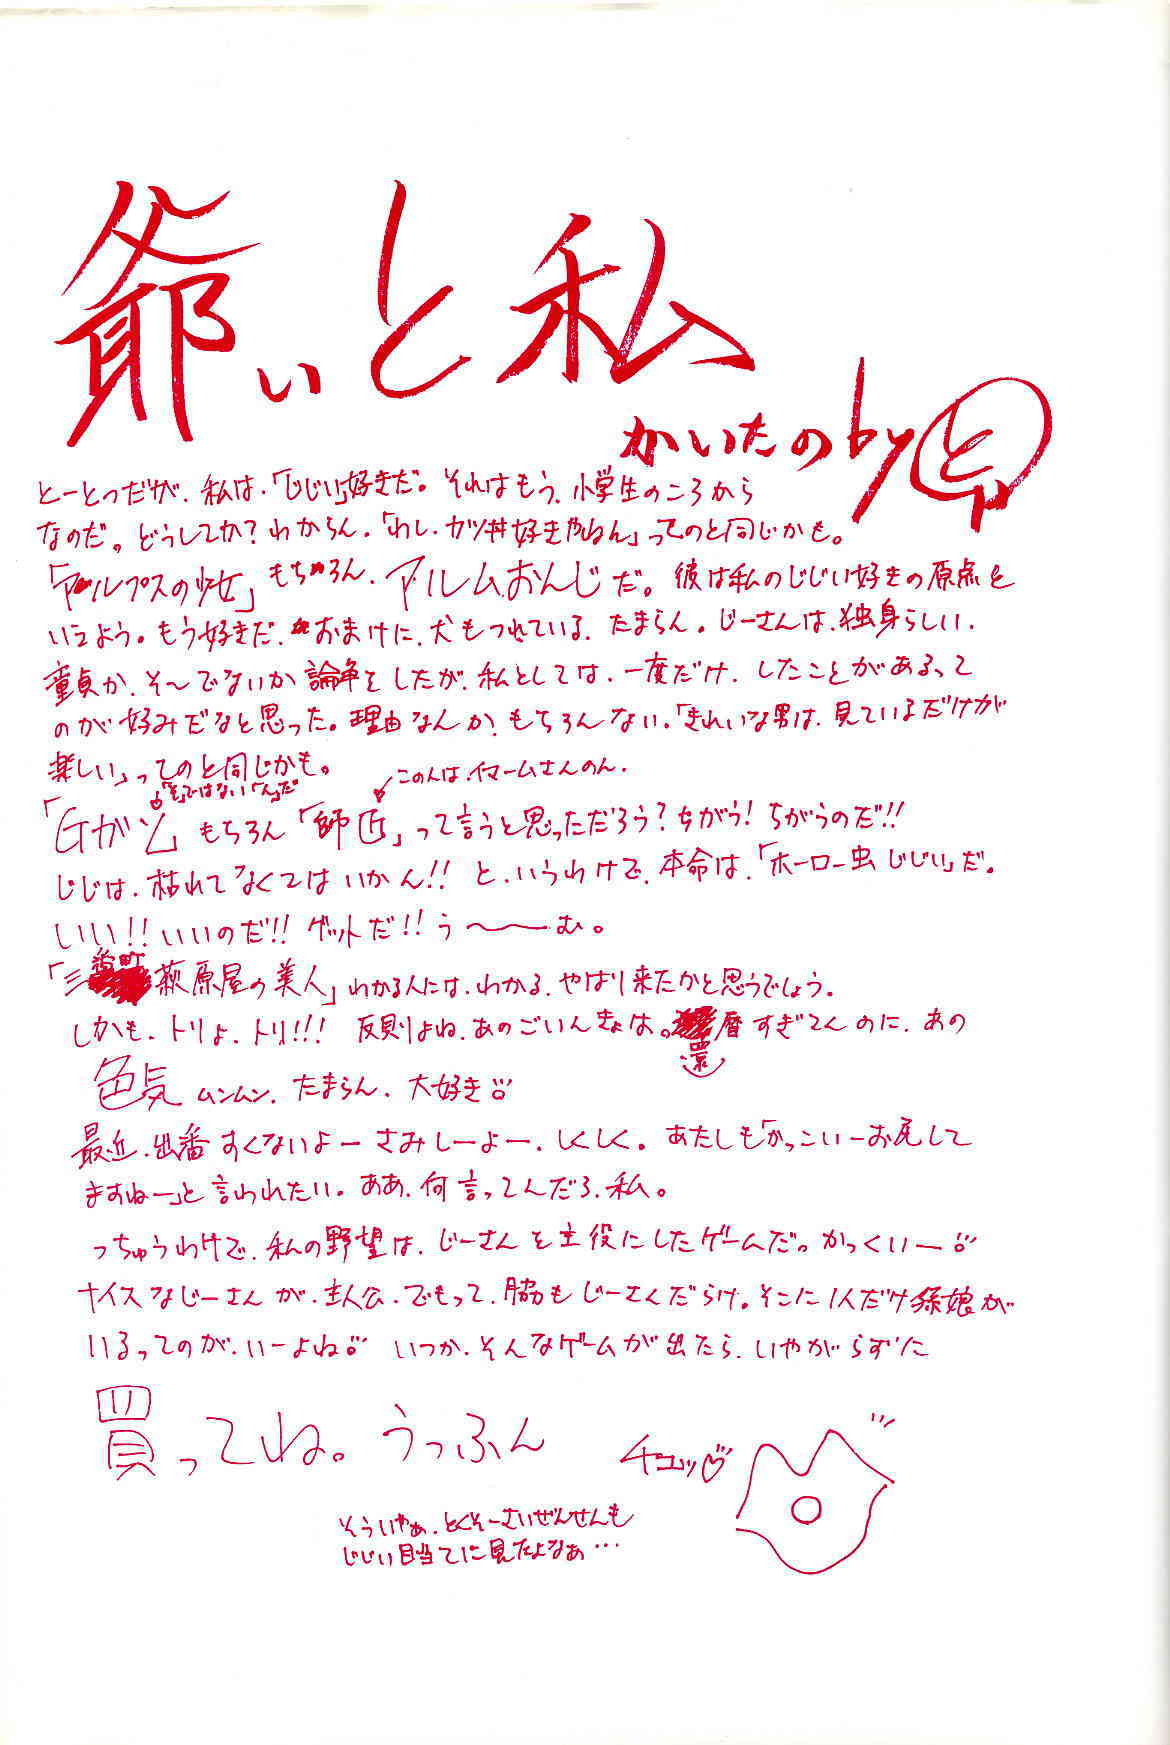 爺ぃと私
かいたのby と
とーとつだが、私は、「じじい」好きだ。それはもう、小学生のころから
なのだ。どうしてか？わからん。「わし、カツ丼好きやねん」ってのと同じかも。
「アルプスの少女」もちろん、アルムおんじだ。彼は私のじじい好きの原点と
いえよう。もう好きだ、おまけに、犬もつれている、たまらん。じーさんは、独身らしい、
童貞か、そ〜でないか論争をしたが、私としては、一度だけ、したことがあるって
のが好みだなと思った。理由なんか、もちろんない。「きれいな男は、見ているだけが
楽しい」ってのと同じかも。
「そ」ではない「ん」だ
このんは、イマームさんのん。
「Gガン」もちろん「師匠」って言うと思っただろう？ちがう！ちがうのだ!!
じじは、枯れてなくてはいかん!!と、いうわけで、本命は、「ホーロー虫じじい」だ。
いい!!いいのだ!!ゲットだ!!う〜〜む。
「三番町萩原屋の美人」わかる人には、わかる、やはり来たかと思うでしょう。
しかも、トリよ、トリ!!!反則よね、あのごいんきょは。還暦すぎてんのに、あの
色気ムンムン、たまらん、大好き
最近、出番すくないよーさみしーよー、しくしく。あたしも「かっこいーお尻して
ますねー」と言われたい。ああ、何言ってんだろ、私。
っちゅうわけで、私の野望は、じーさんを主役にしたゲームだ。かっくいー
ナイスなじーさんが、主人公、でもって、脇もじーさんだらけ。そこに1人だけ孫娘が
いるってのが、いーよねいつか、そんなゲームが出たら、いやがらずに
買ってね。うっふん
チュッ♡
そういやぁ、とくそーさいぜんせんも
じじい目当てに見たよなぁ…